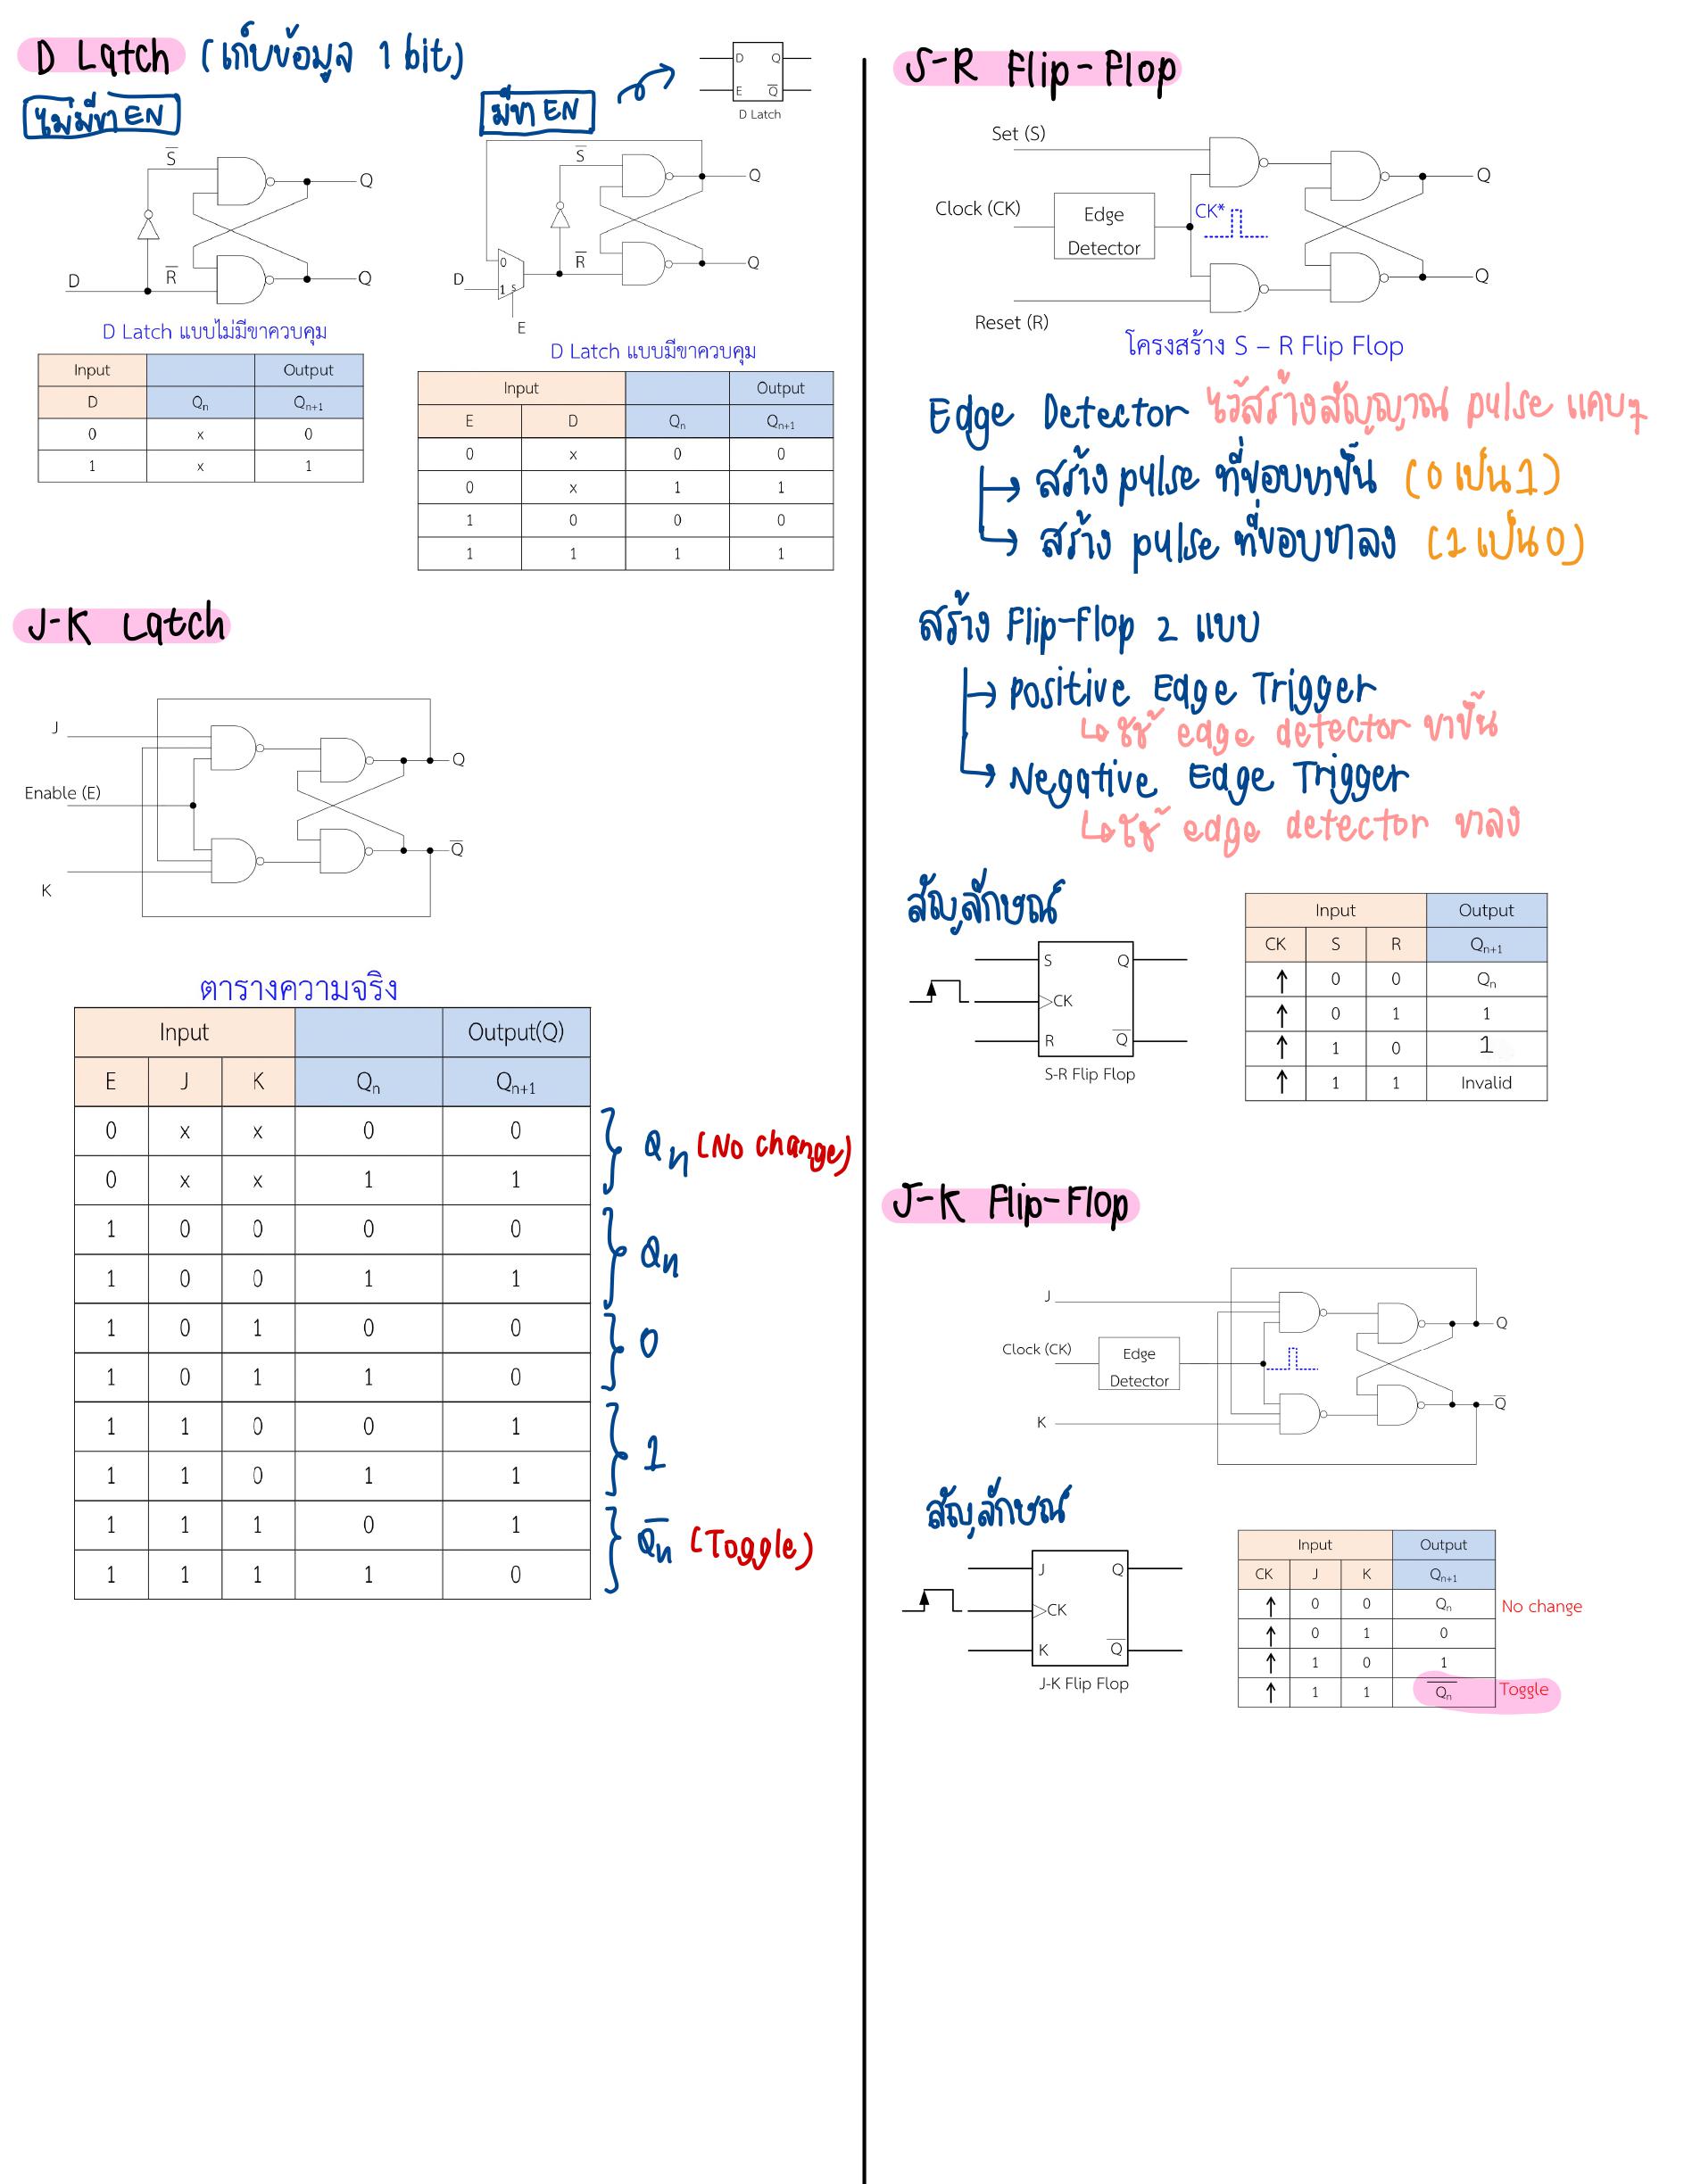 D Latch (เก็บข้อมูล 1 bit)
ไม่มีขา EN
มีขา EN
D Q
E Q̅
D Latch
S̅
Q
D
R̅
Q
D Latch แบบไม่มีขาควบคุม
Input Output
D Qn Qn+1
0 x 0
1 x 1
S̅
Q
0
D
1 s
R̅
Q
E
D Latch แบบมีขาควบคุม
Input Output
E D Qn Qn+1
0 x 0 0
0 x 1 1
1 0 0 0
1 1 1 1
J-K Latch
J
Q
Enable (E)
Q̅
K
ตารางความจริง
Input Output(Q)
E J K Qn Qn+1
0 x x 0 0
0 x x 1 1
Qn (No change)
1 0 0 0 0
1 0 0 1 1
Qn
1 0 1 0 0
1 0 1 1 0
0
1 1 0 0 1
1 1 0 1 1
1
1 1 1 0 1
1 1 1 1 0
Q̅n (Toggle)
S-R Flip-Flop
Set (S)
Q
Clock (CK)
Edge
Detector
CK*
Q
Reset (R)
โครงสร้าง S – R Flip Flop
Edge Detector ไว้สร้างสัญญาณ pulse แคบๆ
สร้าง pulse ที่ขอบขาขึ้น (0 เป็น 1)
สร้าง pulse ที่ขอบขาลง (1 เป็น 0)
สร้าง Flip-Flop 2 แบบ
Positive Edge Trigger
ใช้ edge detector ขาขึ้น
Negative Edge Trigger
ใช้ edge detector ขาลง
สัญลักษณ์
S Q
CK
R Q̅
S-R Flip Flop
Input Output
CK S R Qn+1
↑ 0 0 Qn
↑ 0 1 1
↑ 1 0 1
↑ 1 1 Invalid
J-K Flip-Flop
J
Q
Clock (CK)
Edge
Detector
Q̅
K
สัญลักษณ์
J Q
CK
K Q̅
J-K Flip Flop
Input Output
CK J K Qn+1
↑ 0 0 Qn No change
↑ 0 1 0
↑ 1 0 1
↑ 1 1 Q̅n Toggle